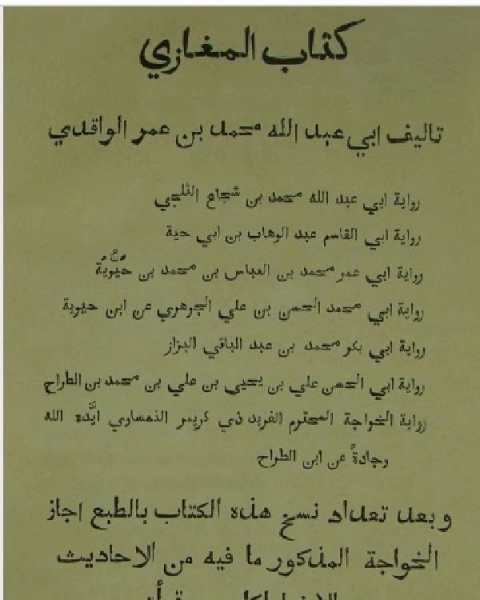 كتاب المغازي
تاليف ابي عبد الله محمد بن عمر الواقدي
رواية ابي عبد الله محمد بن شجاع الثلجي
رواية ابي القاسم عبد الوهاب بن ابي حية
رواية ابي عمر محمد بن العباس بن محمد بن حيوية
رواية ابي محمد الحسن بن علي الجوهري عن ابن حيوية
رواية ابي بكر محمد بن عبد الباقي البزاز
رواية ابي الحسن علي بن يحيى بن علي بن محمد بن الطراح
رواية الخواجة المحترم الفريد ذي كريمر النمساوي ايّده الله
وجادةً عن ابن الطراح
وبعد تعداد نسخ هذه الكتاب بالطبع اجاز
الخواجة المذكور ما فيه من الاحاديث